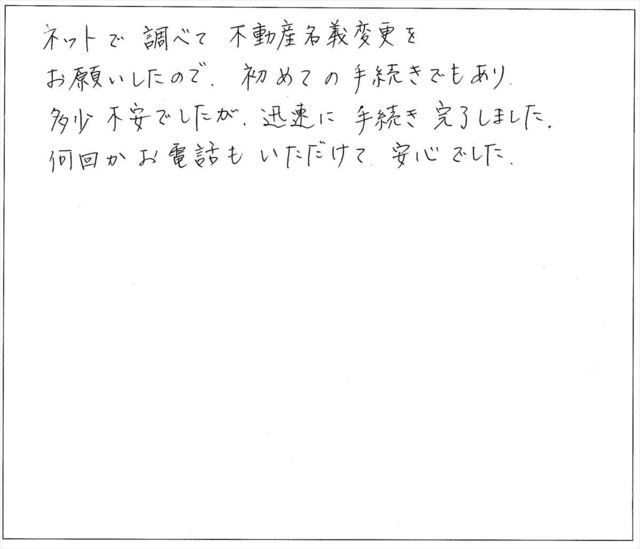 ネットで調べて不動産名義変更を
お願いしたので、初めての手続きでもあり、
多少不安でしたが、迅速に手続き完了しました。
何回かお電話もいただけて、安心でした。